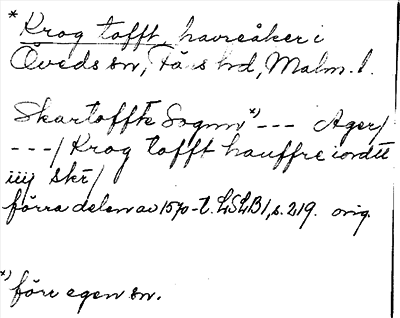 * Krog tofft, havreåker i
Öveds sn, Färs hd, Malm. l.
Skartoffte Sognn *) --- Ager/
---/ Krog tofft hauffre iordtt
iiij skr/
förra delen av 1570-t. LSLB1, s. 219. orig.
*) förr egen sn.